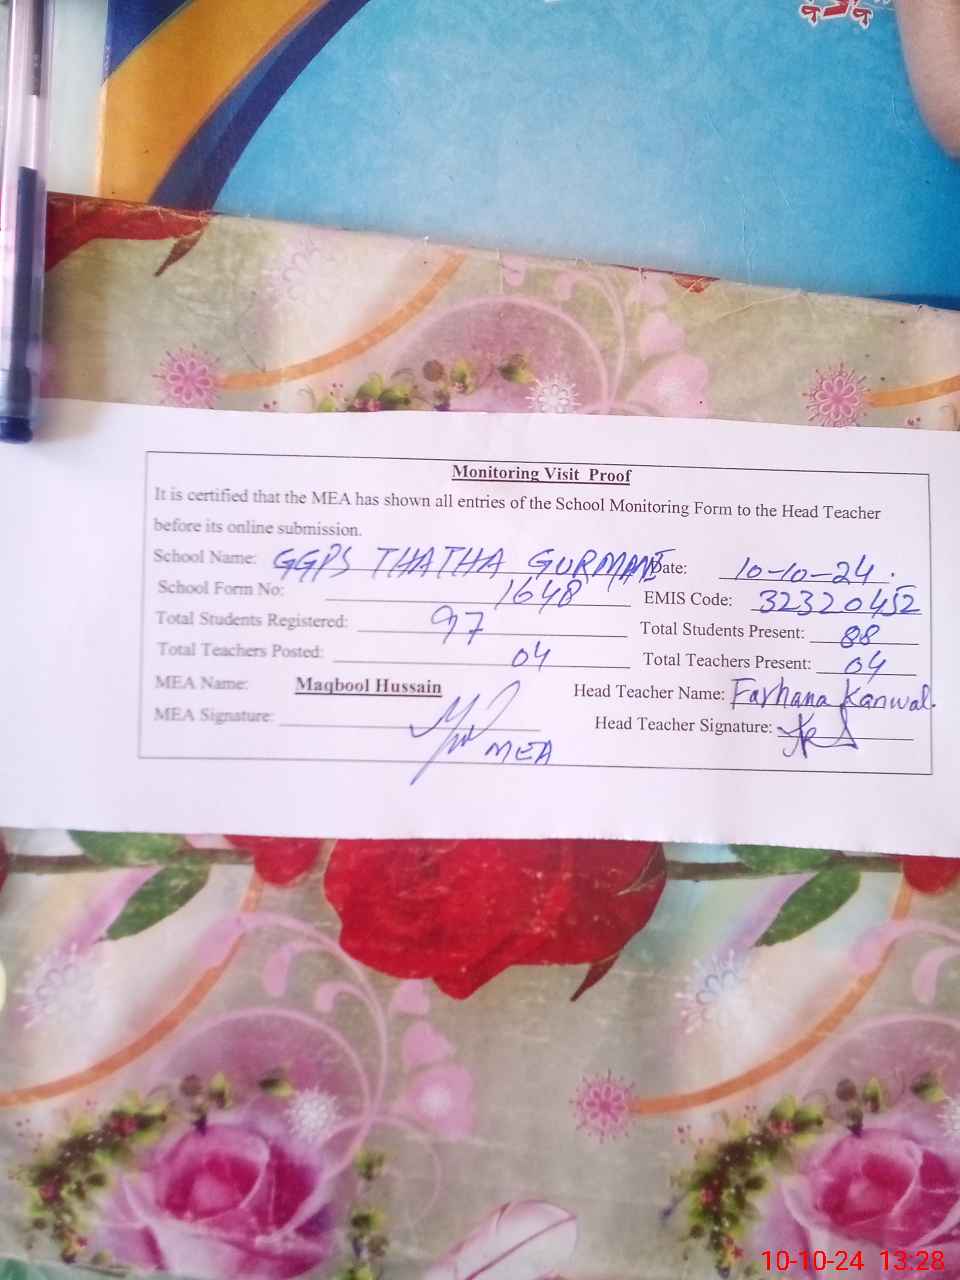 Monitoring Visit Proof
It is certified that the MEA has shown all entries of the School Monitoring Form to the Head Teacher
before its online submission.
School Name: GGPS THATHA GURMANI Date: 10-10-24
School Form No: 1648 EMIS Code: 32320452
Total Students Registered: 97 Total Students Present: 88
Total Teachers Posted: 04 Total Teachers Present: 04
MEA Name: Maqbool Hussain Head Teacher Name: Farhana Kanwal.
MEA Signature: Head Teacher Signature:
MEA
10-10-24 13:28